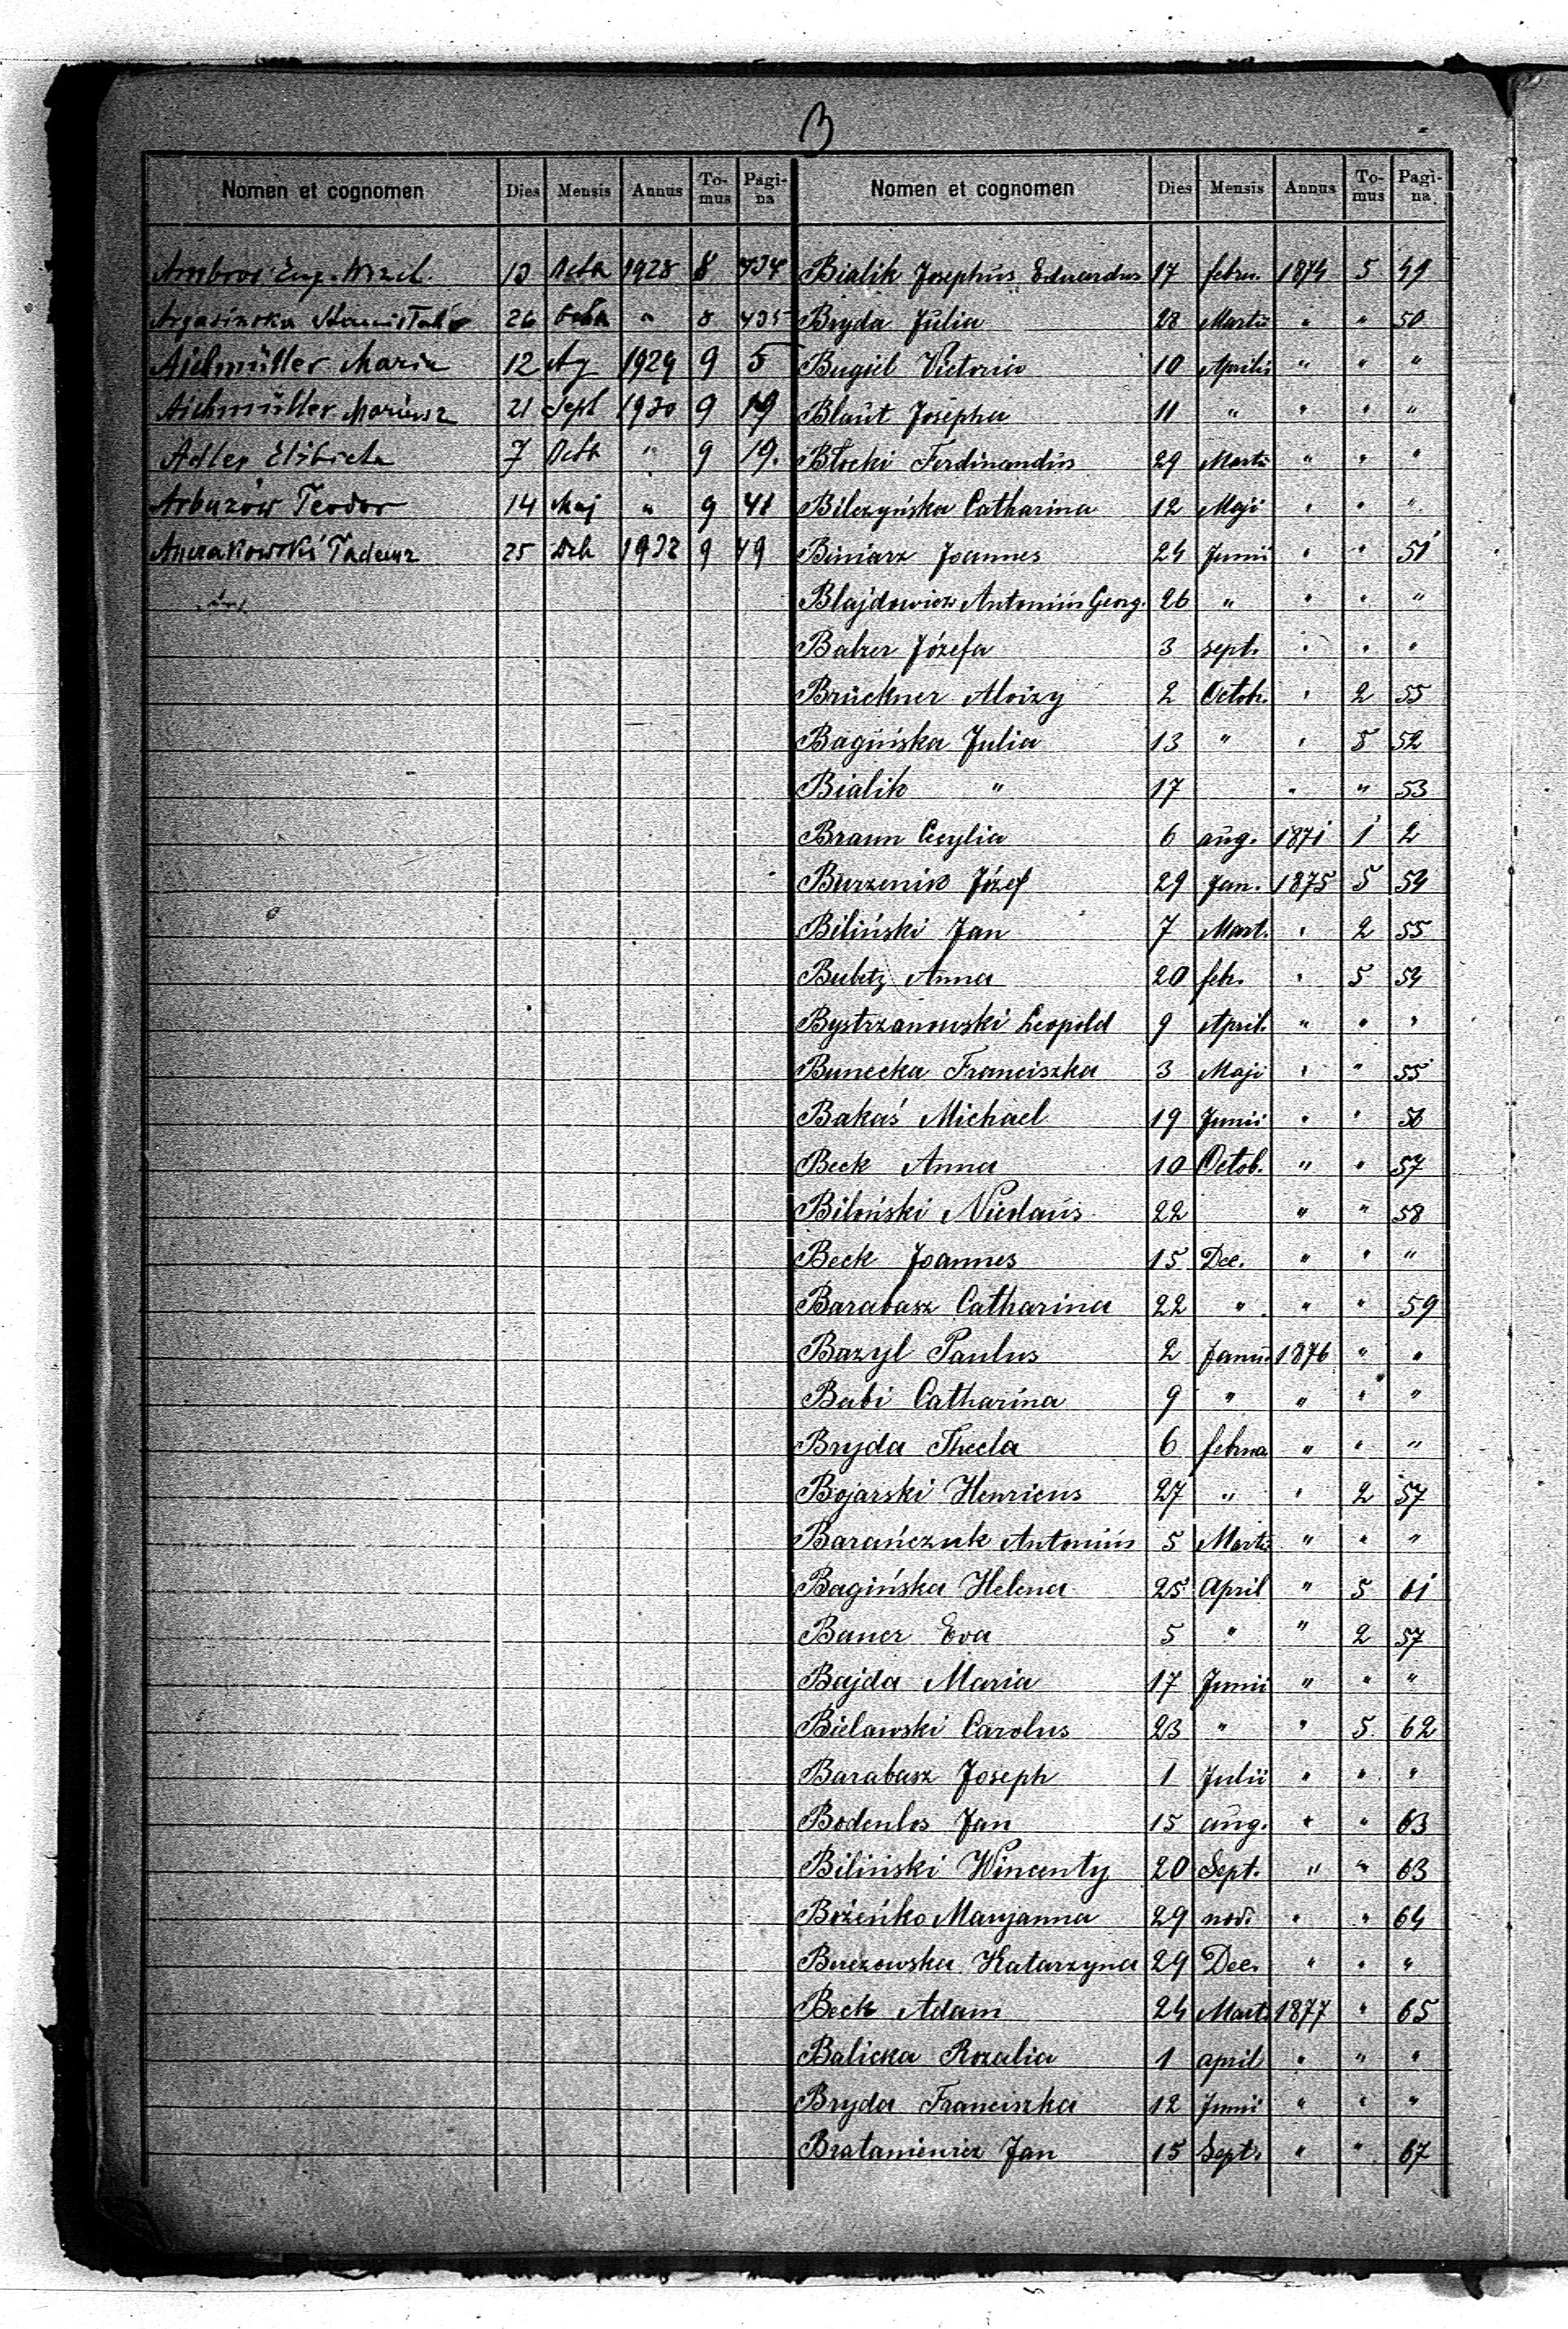 B
Nomen et cognomen Dies Mensis Annus Tomus Pagina
Ambros Eug. 13 Octb 1928 8 434
Argasinska Stanisława 26 Octb " 8 435
Ajchmüller Maria 12 Ag 1929 9 5
Aichmüller Mariusz 21 Sept 1930 9 19
Adler Elżbieta 7 Octb " 9 19.
Arbuzów Teodor 14 Maj " 9 41
Tadeusz 25 1932 9 49
Nomen et cognomen Dies Mensis Annus Tomus Pagina
Bialik Josephus Eduardus 17 febru. 1874 5 49
Bryda Julia 28 Martii " " 50
Bugiel Victoria 10 Aprilis " " "
Blaut Josepha 11 " " " "
Błocki Ferdinandus 29 Martii " " "
Bilczyńska Catharina 12 Maji " " "
Biniarz Joannes 24 Junii " " 51
Blajdowicz Antonius Georg. 26 " " " "
Balzer Józefa 3 sept. " " "
Brückner Aloizy 2 Octob. " 2 55
Bagińska Julia 13 " " 5 52
Bialik " 17 " " 53
Braun Cecylia 6 aug. 1871 1 2
Burzenik Józef 29 Jan. 1875 5 54
Biliński Jan 7 Mart. " 2 55
Anna 20 febr. " 5 54
Bystrzanowski Leopold 9 April. " " "
Bunecka Franciszka 3 Maji " " 55
Bakaś Michael 19 Junii " " 56
Beck Anna 10 Octob. " " 57
Biloński Nicolaus 22 " " 58
Beck Joannes 15 Dec. " " "
Barabasz Catharina 22 " " " 59
Bazyl Paulus 2 Janu. 1876 " "
Babi Catharina 9 " " " "
Bryda Thecla 6 februa " " "
Bojarski Henricus 27 " " 2 57
Barańczuk Antonius 5 Martii " " "
Bagińska Helena 25 April " 5 61
Bauer Eva 5 " " 2 57
Bajda Maria 17 Junii " " "
Bielawski Carolus 23 " " 5 62
Barabasz Joseph 1 Julii " " "
Bodenlos Jan 15 aug. " " 63
Biliński Wincenty 20 Sept. " " 63
Bożeńko Maryanna 29 nov. " " 64
Berezowska Katarzyna 29 Dec. " " "
Beck Adam 24 Mart. 1877 " 65
Balicka Rozalia 1 april " " "
Bryda Franciszka 12 Junii " " "
Bratamiewicz Jan 15 Sept. " " 67